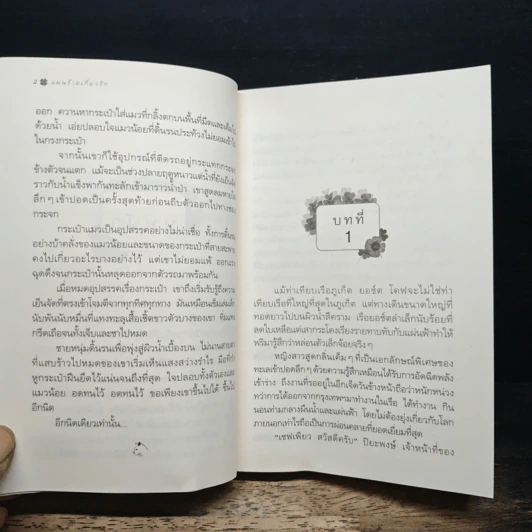 2
แผนร้ายเกี่ยวรัก
ออก ควานหากระเป๋าใส่แมวที่กลิ้งตกบนพื้นที่มืดและเต็มไป
ด้วยน้ำ เอ่ยปลอบใจแมวน้อยที่ดิ้นรนประท้วงไม่ยอมเข้าไป
ในกรงกระเป๋า
จากนั้นเขาก็ใช้อุปกรณ์ที่ติดรถอยู่กระแทกกระจก
ข้างตัวจนแตก แม้จะเป็นช่วงปลายฤดูหนาวแต่น้ำที่ยังเย็น
ราวกับน้ำแข็งพากันทะลักเข้ามาราวน้ำป่า เขาสูดลมหายใจ
ลึกๆ เข้าปอดเป็นครั้งสุดท้ายก่อนถีบตัวออกไปทาง
กระจก
กระเป๋าแมวเป็นอุปสรรคอย่างไม่น่าเชื่อ ทั้งการดิ้น
อย่างบ้าคลั่งของแมวน้อยและขนาดของกระเป๋าที่สายสะพาย
คงไปเกี่ยวอะไรบางอย่างไว้ แต่เขาไม่ยอมแพ้ ออกแรง
ฉุดดึงจนกระเป๋านั้นหลุดออกจากตัวรถมาพร้อมกัน
เมื่อหมดอุปสรรคเรื่องกระเป๋า เขาถึงเริ่มรับรู้ถึงความ
เย็นจัดที่ตรงเข้าโจมตีจากทุกทิศทุกทาง มันเหมือนเข็มเล่มเล็ก
นับพันนับหมื่นที่แทงทะลุเสื้อเชิ้ตขาวตัวบางของเขา ทิ่มแทง
กรีดเถือจนทั้งเจ็บและชาไปหมด
ชายหนุ่มดิ้นรนเพื่อพุ่งสู่ผิวน้ำเบื้องบน ไม่นานสายตา
ที่แสบร้าวไปหมดของเขาเริ่มเห็นแสงสว่างรำไร มือที่กำ
หูกระเป๋าฝืนยึดไว้แน่นจนถึงที่สุด ใจปลอบทั้งตัวเองและ
แมวน้อย อดทนไว้ อดทนไว้ ขอเพียงเขาขึ้นไปได้ ขึ้นไป
อีกนิด
อีกนิดเดียวเท่านั้น...
บทที่
1
แม้ท่าเทียบเรือภูเก็ต ยอช์ต โคฟจะไม่ใช่ท่า
เทียบเรือที่ใหญ่ที่สุดในภูเก็ต แต่ทางเดินขนาดใหญ่ที่
ทอดยาวไปบนผิวน้ำสีคราม เรือยอช์ตลำเล็กนับร้อยที่
ลดใบเหลือแต่เสากระโดงเรียงรายทาบทับกับแผ่นฟ้าทำให้
พริมารู้สึกว่าหล่อนตัวเล็กจ้อยจริงๆ
หญิงสาวสูดกลิ่นเค็มๆ ที่เป็นเอกลักษณ์พิเศษของ
ทะเลเข้าปอดลึกๆ ด้วยความรู้สึกเหมือนได้รับการอัดฉีดพลัง
เข้าร่าง ถึงงานที่รออยู่ในอีกเจ็ดวันข้างหน้าถือว่าหนักหน่วง
ทว่าการได้ออกจากกรุงเทพฯมาทำงานในเรือ ได้ทำงาน กิน
นอนท่ามกลางผืนน้ำและแผ่นฟ้า โดยไม่ต้องยุ่งเกี่ยวกับโลก
ภายนอกเท่าไรถือเป็นการผ่อนคลายที่ยอดเยี่ยมที่สุด
“เชฟเพียว สวัสดีครับ” ปิยะพงษ์ เจ้าหน้าที่ของ